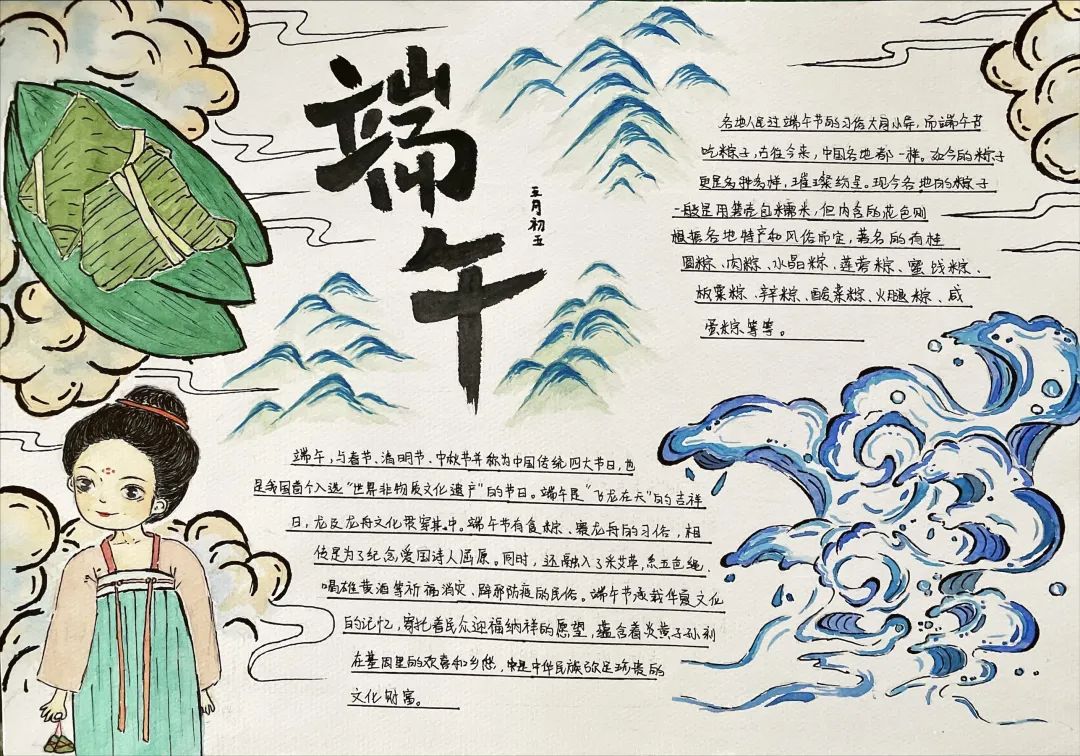 端
午
五月初五
各地人民过端午节的习俗大同小异，而端午节
吃粽子，古往今来，中国各地都一样。如今的粽子
更是多种多样，璀璨纷呈。现今各地的粽子
一般是用箬壳包糯米，但内含的花色则
根据各地特产和风俗而定，著名的有桂
圆粽、肉粽、水晶粽、莲蓉粽、蜜饯粽、
板栗粽、辣粽、酸菜粽、火腿粽、咸
蛋粽等等。
端午，与春节、清明节、中秋节并称为中国传统四大节日，也
是我国首个入选“世界非物质文化遗产”的节日。端午是“飞龙在天”的吉祥
日，龙及龙舟文化贯穿其中。端午节有食粽、赛龙舟的习俗，相
传是为了纪念爱国诗人屈原。同时，还融入了采艾草、系五色绳、
喝雄黄酒等祈福消灾、辟邪防疫的民俗。端午节承载华夏文化
的记忆，寄托着民众迎福纳祥的愿望，蕴含着炎黄子孙刻
在基因里的欢喜和乡愁，是中华民族弥足珍贵的
文化财富。